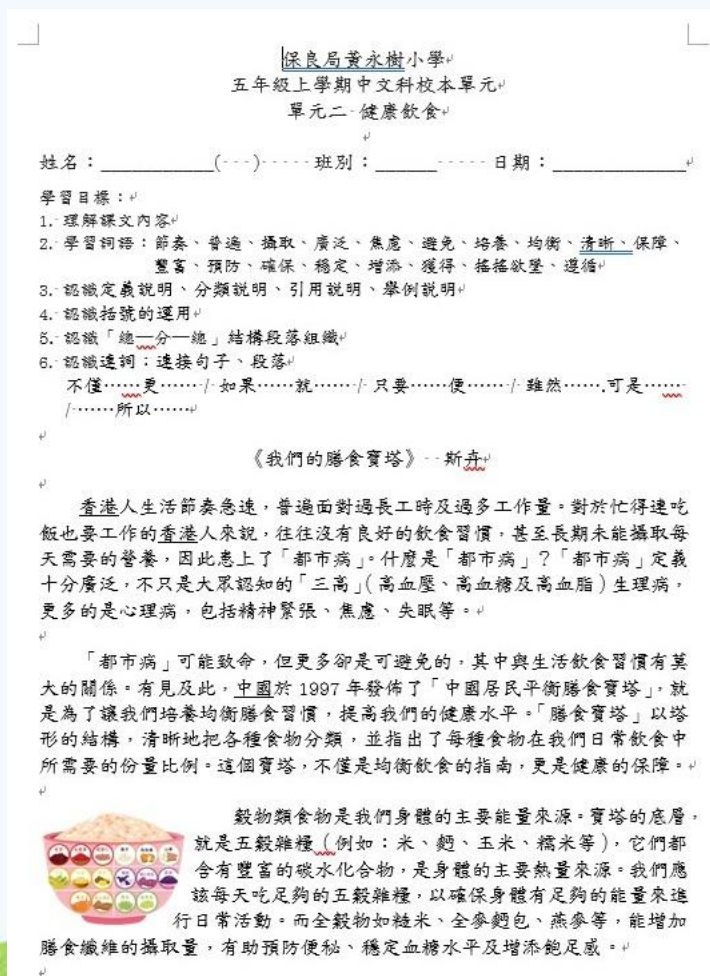 保良局黃永樹小學
五年級上學期中文科校本單元
單元二-健康飲食
姓名：___________(   )     班別：______     日期：_____________
學習目標：
1. 理解課文內容
2. 學習詞語：節奏、普遍、攝取、廣泛、焦慮、避免、培養、均衡、清晰、保障、
豐富、預防、確保、穩定、增添、獲得、搖搖欲墜、遵循
3. 認識定義說明、分類說明、引用說明、舉例說明
4. 認識括號的運用
5. 認識「總—分—總」結構段落組織
6. 認識連詞：連接句子、段落
不僅……更……/ 如果……就……/ 只要……便……/ 雖然…….可是……
/……所以……
《我們的膳食寶塔》--斯卉
香港人生活節奏急速，普遍面對過長工時及過多工作量。對於忙得連吃
飯也要工作的香港人來說，往往沒有良好的飲食習慣，甚至長期未能攝取每
天需要的營養，因此患上了「都市病」。什麼是「都市病」？「都市病」定義
十分廣泛，不只是大眾認知的「三高」(高血壓、高血糖及高血脂)生理病，
更多的是心理病，包括精神緊張、焦慮、失眠等。
「都市病」可能致命，但更多卻是可避免的，其中與生活飲食習慣有莫
大的關係。有見及此，中國於 1997 年發佈了「中國居民平衡膳食寶塔」，就
是為了讓我們培養均衡膳食習慣，提高我們的健康水平。「膳食寶塔」以塔
形的結構，清晰地把各種食物分類，並指出了每種食物在我們日常飲食中
所需要的份量比例。這個寶塔，不僅是均衡飲食的指南，更是健康的保障。
穀物類食物是我們身體的主要能量來源。寶塔的底層，
就是五穀雜糧（例如：米、麪、玉米、糯米等），它們都
含有豐富的碳水化合物，是身體的主要熱量來源。我們應
該每天吃足夠的五穀雜糧，以確保身體有足夠的能量來進
行日常活動。而全穀物如糙米、全麥麪包、燕麥等，能增加
膳食纖維的攝取量，有助預防便秘、穩定血糖水平及增添飽足感。